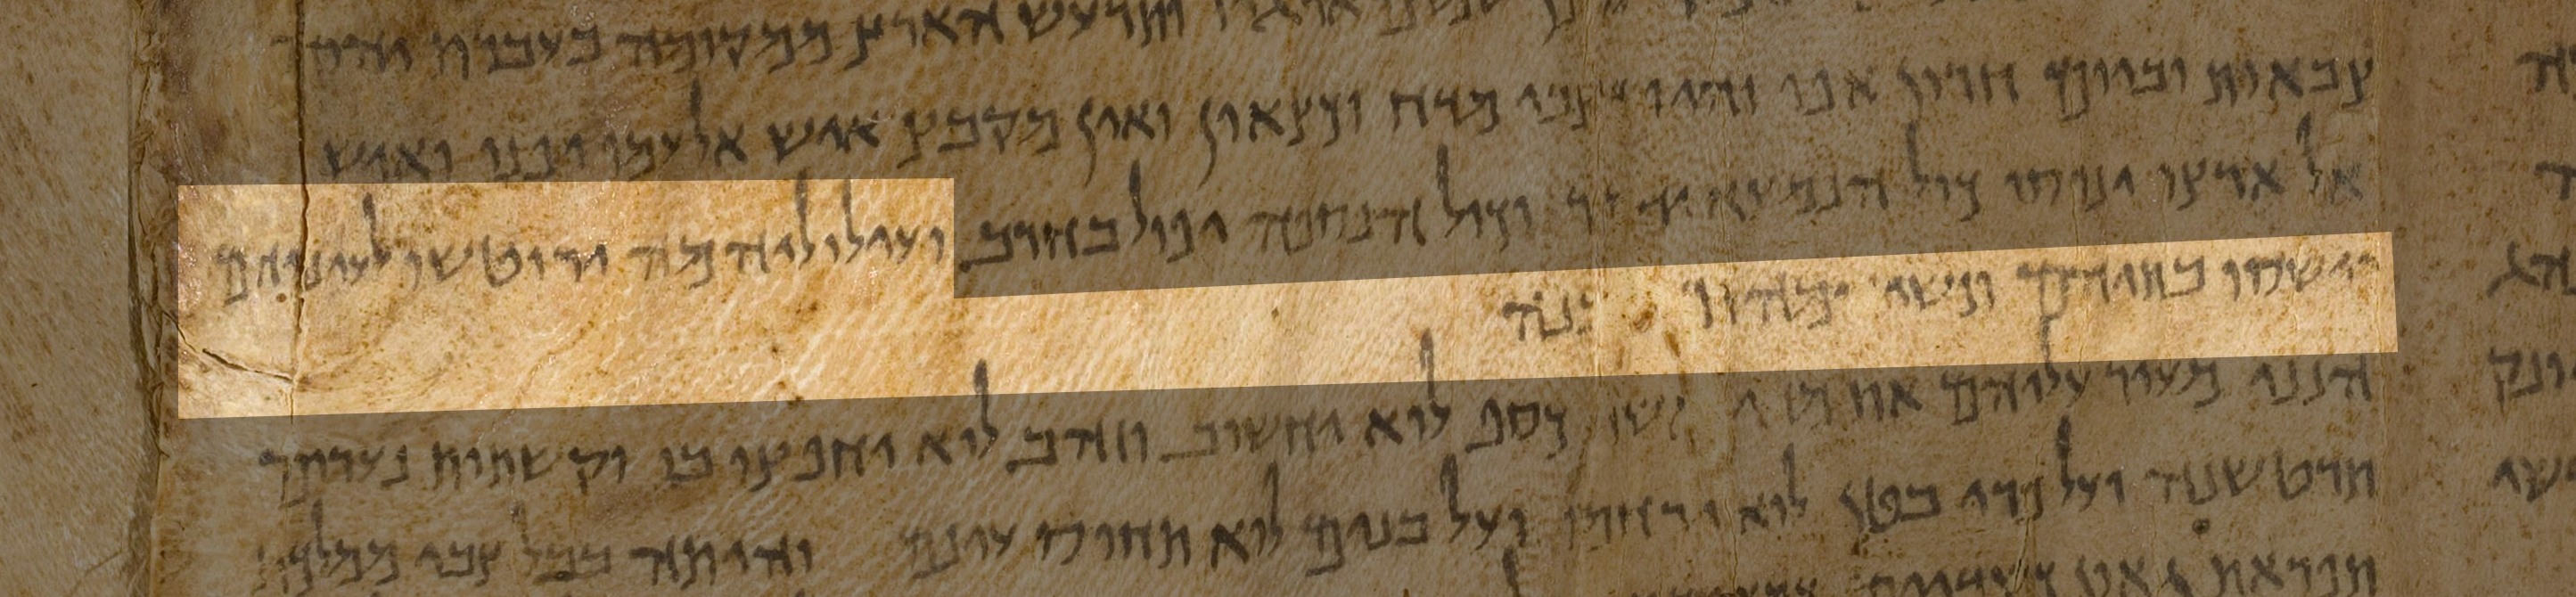 ותרעש הארץ ממקומה בעברת יהוה
צבאות וביום חרון אפו והיו כצבי מדח וכצאון ואין מקבץ איש אל עמו יפנו ואיש
אל ארצו ינוסו כול הנמצא ידקר וכול הנספה יפול בחרב ועולוליהמה ירוטשו לעיניהם
ישסו בתיהם ונשיהמה
הנני מעיר עליהם את מדי אשר כסף לוא יחשובו וזהב לוא יחפצו בו וקשתות נערים
תרטשנה ועל פרי בטן לוא ירחמו ועל בנים לוא תחוס עינם והייתה בבל צבי ממלכת
תפראת גאון